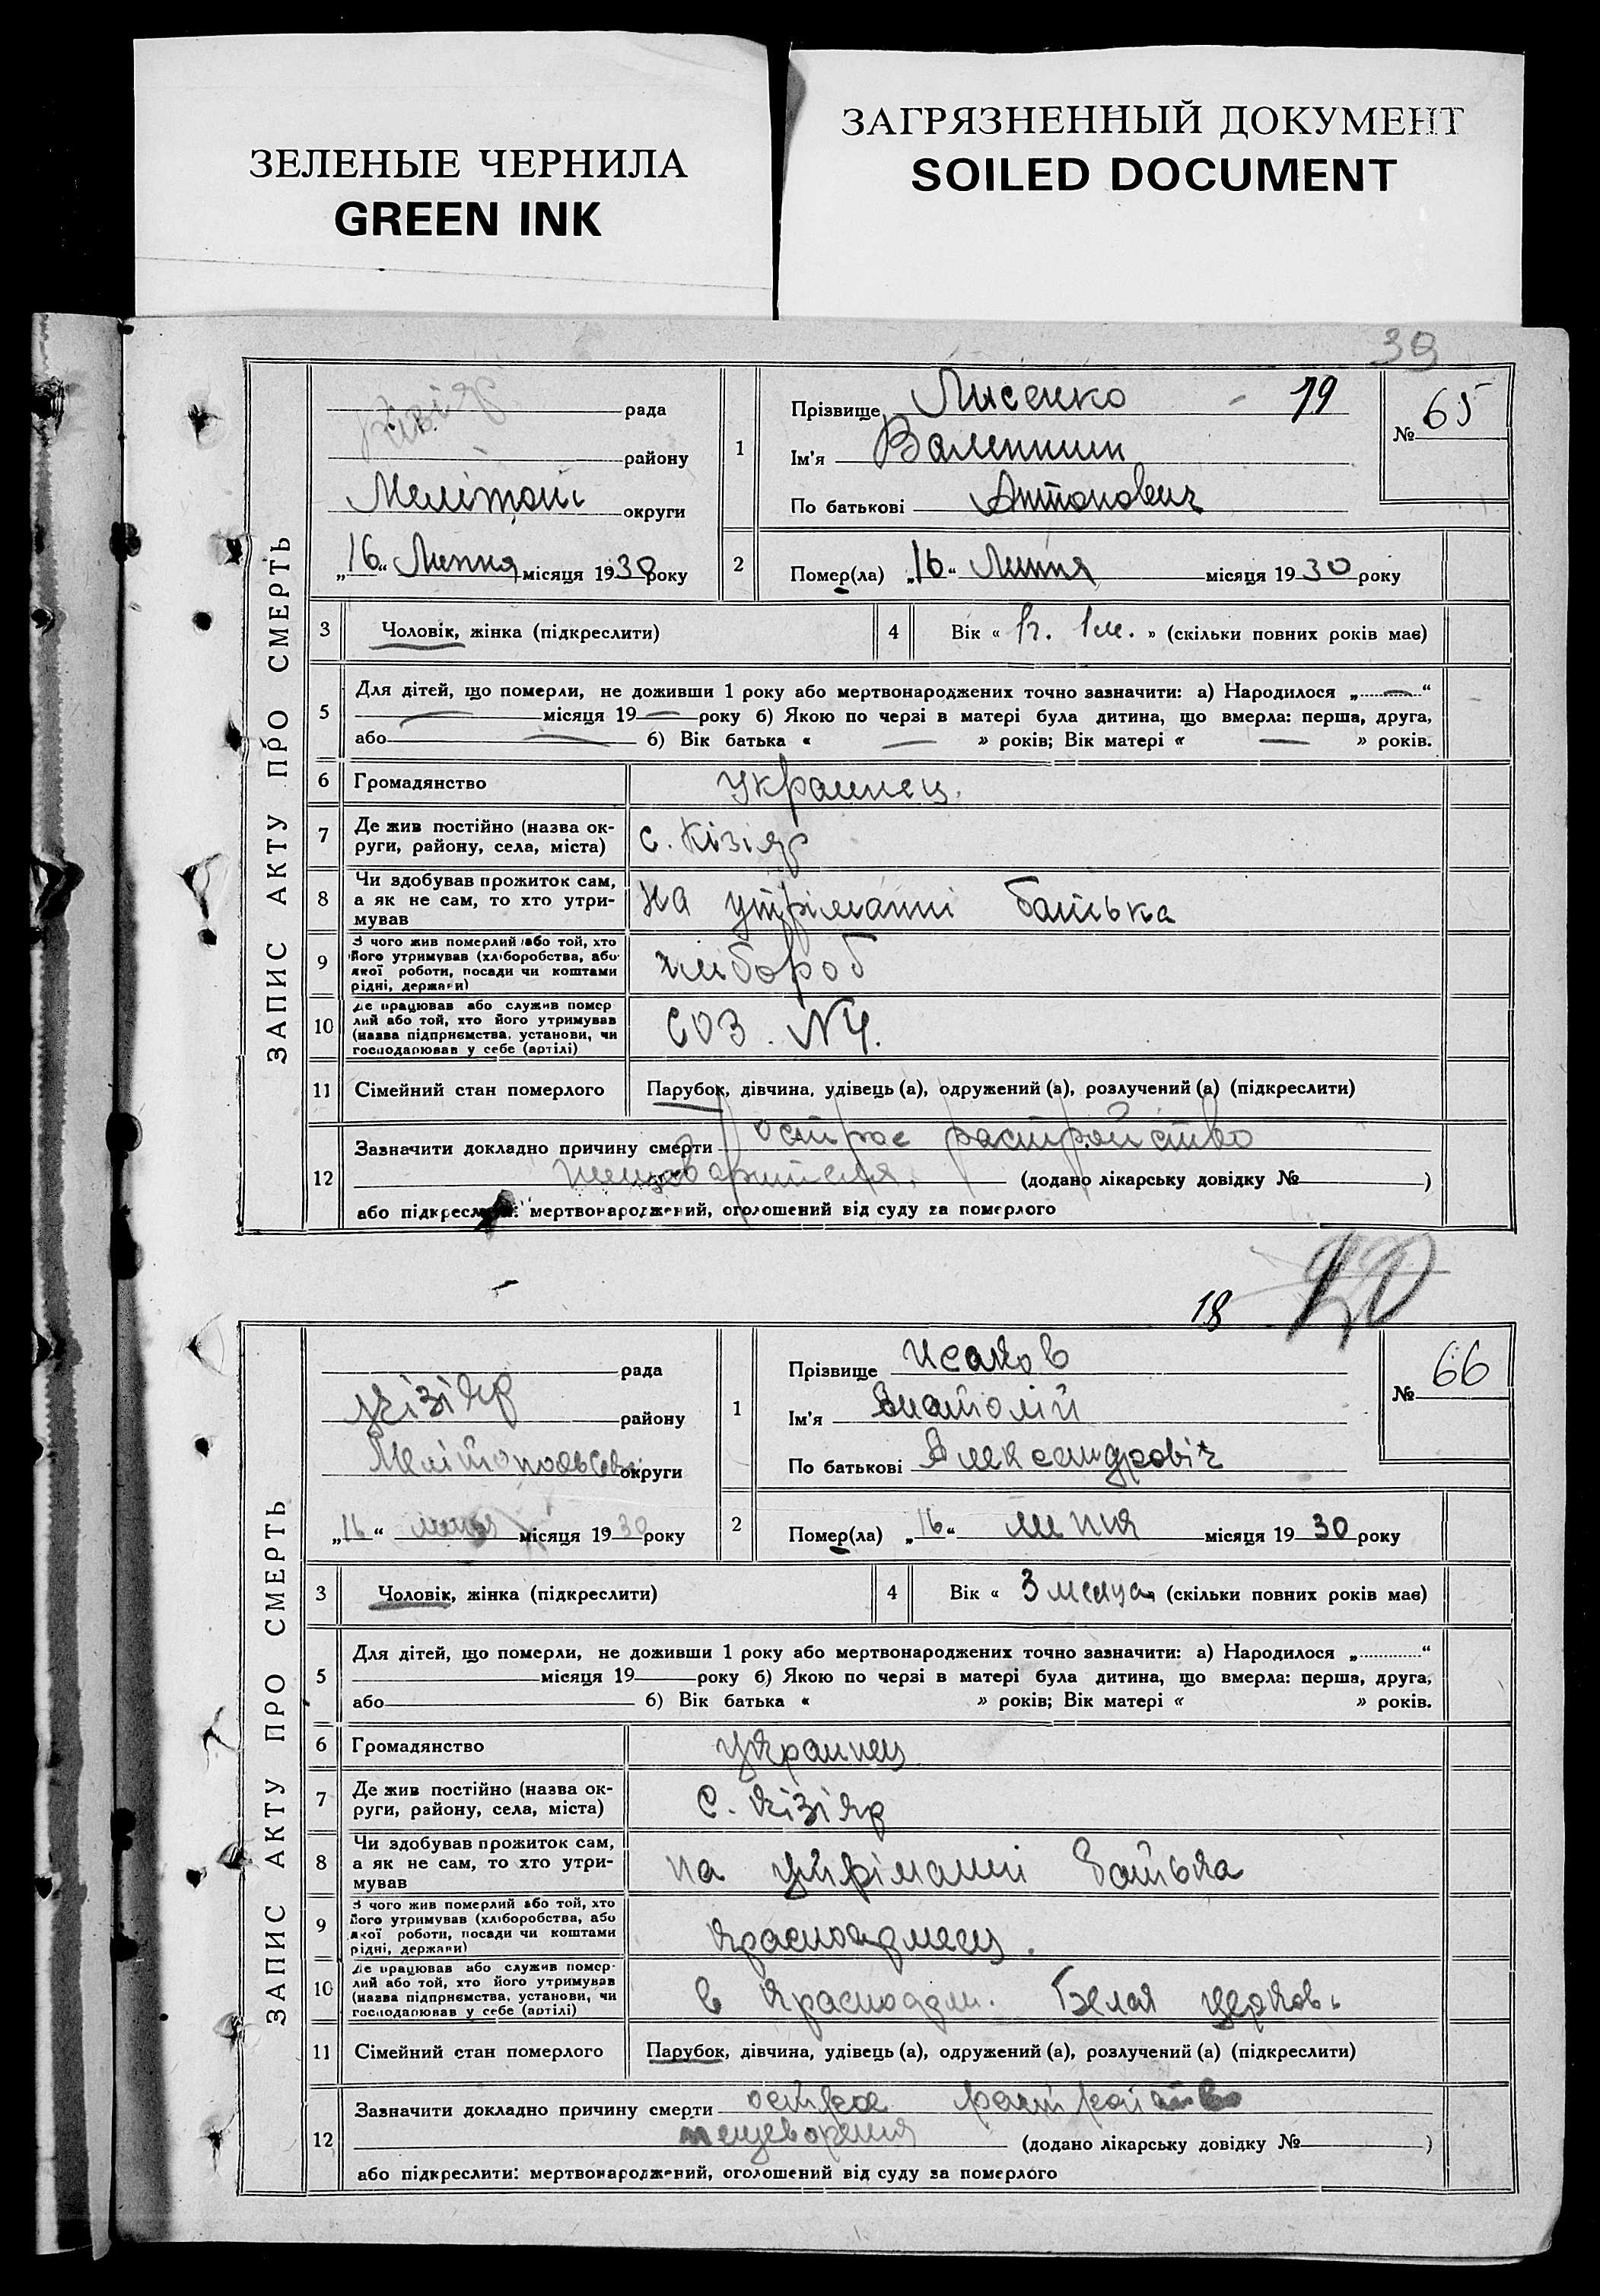 ЗЕЛЕНЫЕ ЧЕРНИЛА
GREEN INK
ЗАГРЯЗНЕННЫЙ ДОКУМЕНТ
SOILED DOCUMENT
39
ЗАПИС АКТУ ПРО СМЕРТЬ
Кізіяр рада
району
Мелітоп округи
„16“ Липня місяця 1930 року
1 Прізвище Лисенко - 19
Ім'я Валентин
По батькові Антонович
№ 65
2 Помер(ла) „16“ Липня місяця 1930 року
3 Чоловік, жінка (підкреслити)
4 Вік « 1г. 1м. » (скільки повних років має)
5 Для дітей, що померли, не доживши 1 року або мертвонароджених точно зазначити: а) Народилося „ — “
— місяця 19 — року б) Якою по черзі в матері була дитина, що вмерла: перша, друга,
або — б) Вік батька « — » років; Вік матері « — » років.
6 Громадянство украинец.
7 Де жив постійно (назва ок-
руги, району, села, міста) с. Кізіяр
8 Чи здобував прожиток сам,
а як не сам, то хто утри-
мував на утріманні батька
9 З чого жив померлий або той, хто
його утримував (хліборобства, або
якої роботи, посади чи коштами
рідні, держави) хлібороб
10 Де працював або служив помер-
лий або той, хто його утримував
(назва підприємства, установи, чи
господарював у себе (артілі) СОЗ. №4.
11 Сімейний стан померлого Парубок, дівчина, удівець (а), одружений (а), розлучений (а) (підкреслити)
12 Зазначити докладно причину смерти острое растройство
(додано лікарську довідку № )
або підкреслити: мертвонароджений, оголошений від суду за померлого
18
ЗАПИС АКТУ ПРО СМЕРТЬ
рада
Кізіяр району
Мелітопольськ округи
„16“ липня місяця 1930 року
1 Прізвище Исаков
Ім'я Анатолій
По батькові Александровіч
№ 66
2 Помер(ла) „16“ липня місяця 1930 року
3 Чоловік, жінка (підкреслити)
4 Вік « 3 месяца » (скільки повних років має)
5 Для дітей, що померли, не доживши 1 року або мертвонароджених точно зазначити: а) Народилося „ “
місяця 19 року б) Якою по черзі в матері була дитина, що вмерла: перша, друга,
або б) Вік батька « » років; Вік матері « » років.
6 Громадянство украинец
7 Де жив постійно (назва ок-
руги, району, села, міста) с. Кізіяр
8 Чи здобував прожиток сам,
а як не сам, то хто утри-
мував на утріманні батька
9 З чого жив померлий або той, хто
його утримував (хліборобства, або
якої роботи, посади чи коштами
рідні, держави) красноармеец.
10 Де працював або служив помер-
лий або той, хто його утримував
(назва підприємства, установи, чи
господарював у себе (артілі) в Красноарм. Белая церковь
11 Сімейний стан померлого Парубок, дівчина, удівець (а), одружений (а), розлучений (а) (підкреслити)
12 Зазначити докладно причину смерти острое растройство
пещеворения (додано лікарську довідку № )
або підкреслити: мертвонароджений, оголошений від суду за померлого